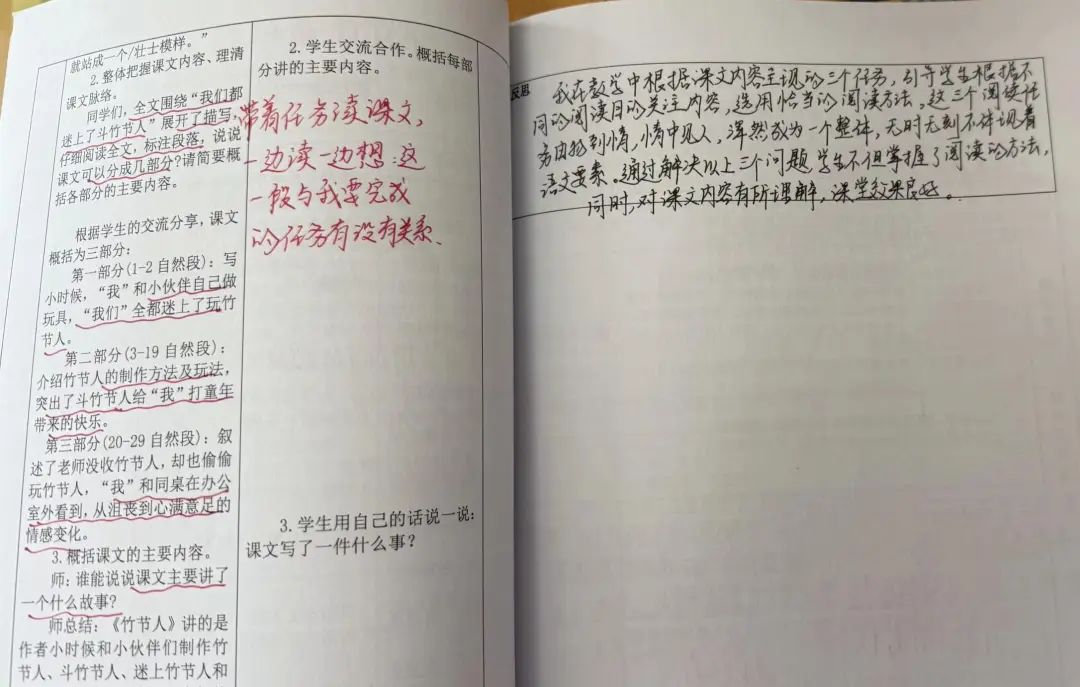 就站成一个/壮士模样。”
2.整体把握课文内容、理清
课文脉络。
同学们,全文围绕“我们都
迷上了斗竹节人”展开了描写,
仔细阅读全文,标注段落,说说
课文可以分成几部分?请简要概
括各部分的主要内容。
根据学生的交流分享,课文
概括为三部分:
第一部分(1-2自然段):写
小时候,“我”和小伙伴自己做
玩具,“我们”全都迷上了玩竹
节人。
第二部分(3-19自然段):
介绍竹节人的制作方法及玩法,
突出了斗竹节人给“我”打童年
带来的快乐。
第三部分(20-29自然段):叙
述了老师没收竹节人,却也偷偷
玩竹节人,“我”和同桌在办公
室外看到,从沮丧到心满意足的
情感变化。
3.概括课文的主要内容。
师:谁能说说课文主要讲了
一个什么故事?
师总结:《竹节人》讲的是
作者小时候和小伙伴们制作竹
节人、斗竹节人、迷上竹节人和
2.学生交流合作。概括每部
分讲的主要内容。
带着任务读课文,
一边读一边想:这
一段与我要完成
的任务有没有关系.
3.学生用自己的话说一说:
课文写了一件什么事?
反思
我在教学中根据课文内容呈现的三个任务,引导学生根据不
同的阅读目的关注内容,选用恰当的阅读方法。这三个阅读任
务由物到情,情中见人,浑然成为一个整体,无时无刻不体现着
语文要素。通过解决以上三个问题学生不但掌握了阅读的方法,
同时,对课文内容有所理解,课堂效果良好。